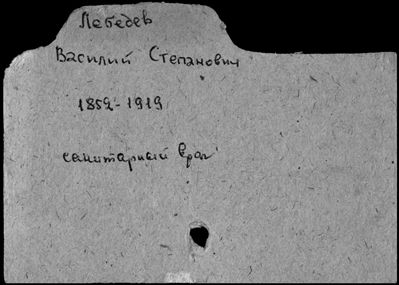 Лебедев
Василий Степанович
1852-1919
санитарный врач